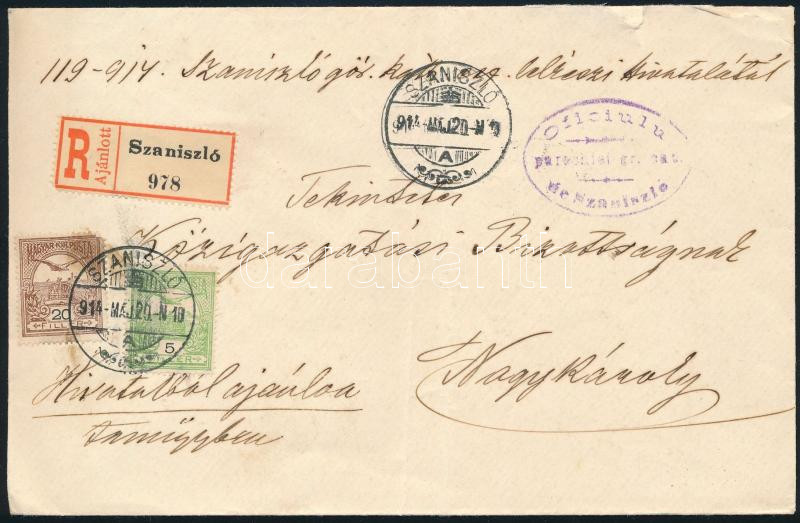 119-914. Szaniszló gör. kath. lelkészi hivatalától
SZANISZLÓ
914-MÁJ.20.-N10
A
Oficiulu
parochial gr. cat.
de Szaniszló
R
Ajánlott
Szaniszló
978
Tekintetes
Közigazgatási Bizottságnak
MAGYAR KIR. POSTA
20
FILLÉR
5
FILLÉR
SZANISZLÓ
914-MÁJ.20.-N10
A
Nagykároly
Hivatalból ajánlva
darabanth